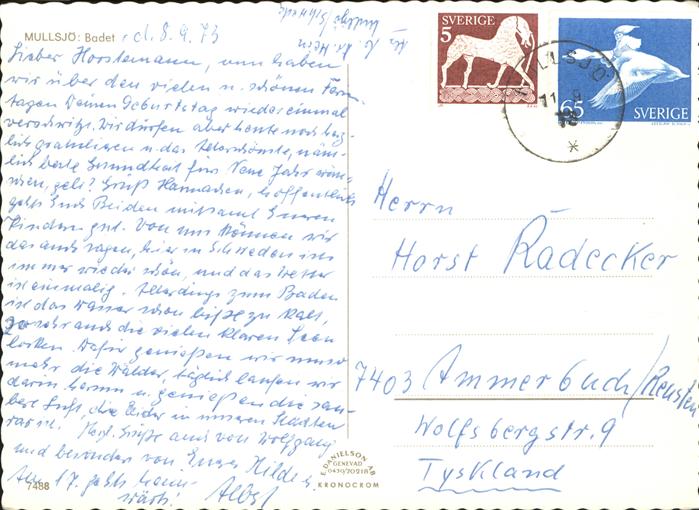 MULLSJÖ: Badet, d. 8.9.73
Lieber Horstemann, nun haben
wir über den vielen u. schönen Ferien-
tagen Deinen Geburtstag wieder einmal
verschwitzt. Wir dürfen aber heute noch herz-
lich gratulieren u. das Allerschönste, näm-
lich beste Gesundheit fürs Neue Jahr wün-
schen, gelt? Grüß Hannachen, hoffentlich
geht's Euch Beiden mitsamt Euren
Kindern gut. Von uns können wir
das auch sagen, hier in Schweden ists
immer wieder schön, und das Wetter
ist einmalig. Allerdings zum Baden
ist das Wasser schon bissle zu kalt,
so sehr auch die vielen klaren Seen
locken. Dafür genießen wir umso
mehr die Wälder, täglich laufen wir
darin herum u. genießen die sau-
bere Luft, die leider in unseren Städten
rar ist. Herzl. Grüße auch von Wolfgang
und besonders von Eurer Hilde u.
Am 17. gehts heim-
wärts! Albst
7488
E. DANIELSON AB
GENEVAD
0430/70218
KRONOCROM
SVERIGE
5
65
SVERIGE
MULLSJÖ
11 9
73
Herrn
Horst Radecker
7403 Ammerbuch/Reusten
Wolfsbergstr. 9
Tyskland